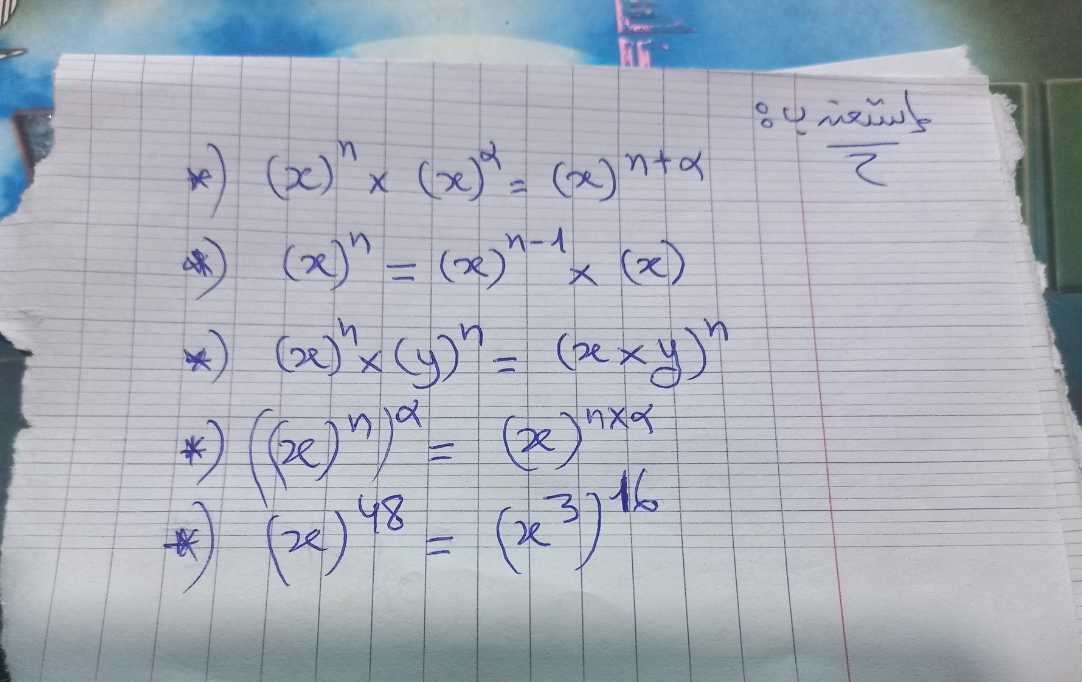 نستعين ب:
*) (x)ⁿ × (x)^α = (x)^(n+α)
*) (x)ⁿ = (x)^(n-1) × (x)
*) (x)ⁿ × (y)ⁿ = (x × y)ⁿ
*) ((x)ⁿ)^α = (x)^(n×α)
*) (x)⁴⁸ = (x³)¹⁶